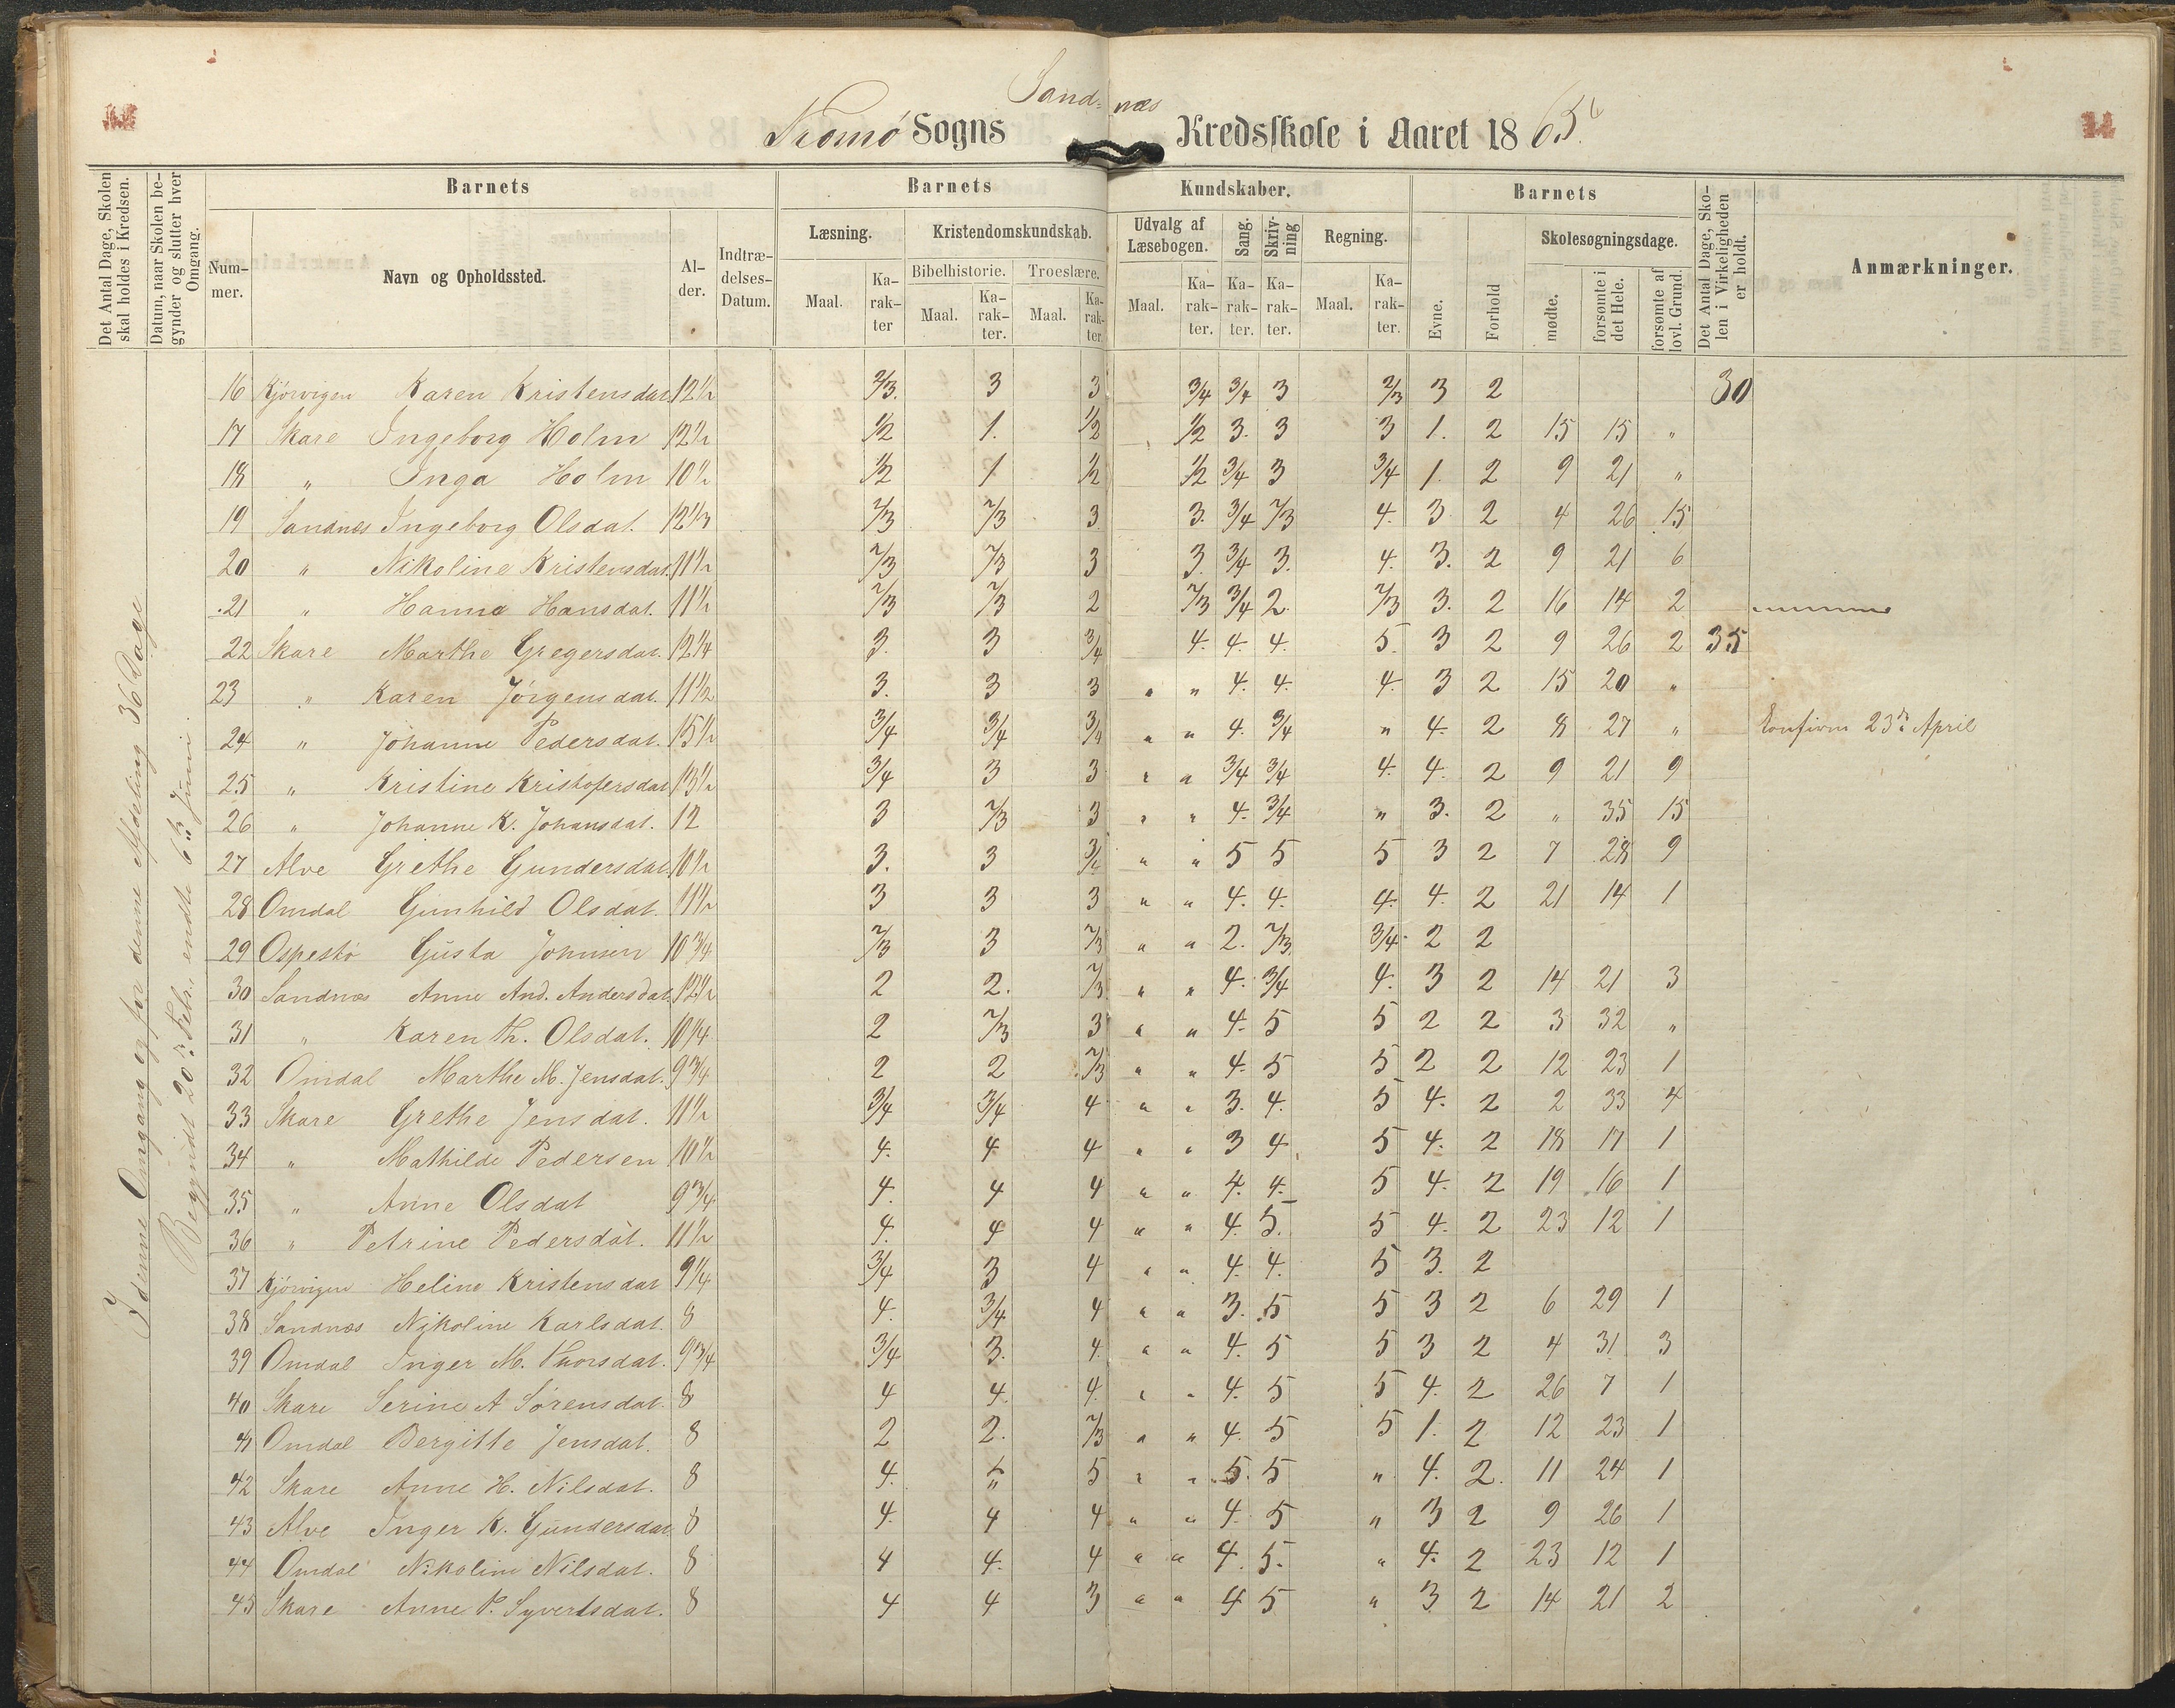 Sand= næs
Tromø Sogns Kredsskole i Aaret 1865.
Det Antal Dage, Skolen skal holdes i Kredsen.
Datum, naar Skolen begynder og slutter hver Omgang.
Barnets Barnets Kundskaber. Barnets
Nummer. Navn og Opholdssted. Alder. Indtrædelses-Datum.
Læsning. Kristendomskundskab. Udvalg af Læsebogen. Sang. Skrivning Regning.
Bibelhistorie. Troeslære.
Maal. Karakter Maal. Karakter. Maal. Karakter. Maal. Karakter. Karakter. Karakter. Maal. Karakter.
Evne. Forhold Skolesøgningsdage. mødte. forsømte i det Hele. forsømte af lovl. Grund.
Det Antal Dage, Skolen i Virkeligheden er holdt.
Anmærkninger.
I denne Omgang og for denne Afdeling 36 Dage
Begyndt 20de Febr., endte 6te Juni.
16 Kjörvigen Karen Kristensdat. 12½ 2/3. 3 3 3/4 3/4 3 2/3 3 2 30
17 Skare Ingeborg Holm 12½ 1/2 1. 1/2 1/2 3. 3 3 1. 2 15 15 "
18 " Inga Holm 10½ 1/2 1 1/2 1/2 3/4 3 3/4 1. 2 9 21 "
19 Sandnæs Ingeborg Olsdat. 12 1/3 2/3 2/3 3. 3. 3/4 2/3 4. 3. 2 4 26 15
20 " Nikoline Kristensdat. 11½ 2/3 2/3 3 3. 3/4 3. 4. 3. 2 9 21 6
21 " Hanna Hansdat. 11½ 2/3 2/3 2 2/3 3/4 2. 2/3 3. 2 16 14 2
22 Skare Marthe Gregersdat. 12¼ 3. 3 3/4 4. 4. 4. 5. 3 2 9 26 2 35
23 " Karen Jörgensdat. 11½ 3. 3 3 " " 4. 4. 4. 3 2 15 20 "
24 " Johanne Pedersdat. 15½ 3/4 3/4 3/4 " " 4. 3/4 " 4. 2 8 27 " Konfirm 23de April
25 " Kristine Kristofersdat 13½ 3/4 3 3 " " 3/4 3/4 4. 4. 2 9 21 9
26 " Johanne K. Johansdat. 12 3 2/3 3 " " 4. 3/4 " 3. 2 " 35 15
27 Alve Grethe Gundersdat. 10½ 3. 3 3/4 " " 5 5 5 3 2 7 28 9
28 Omdal Gunhild Olsdat. 11½ 3 3 3 " " 4. 4. 4. 4. 2 21 14 1
29 Ospestø Gusta Johnsen 10¾ 2/3 3 2/3 " " 2. 2/3. 3/4. 2 2
30 Sandnæs Anne And. Andersdat. 12½ 2 2. 2/3 " " 4. 3/4 4. 3 2 14 21 3
31 " Karen Th. Olsdat. 10¼ 2 2/3 3 " " 4. 5 5 2 2 3 32 "
32 Omdal Marthe M. Jensdat. 9¾ 2 2 2/3 " " 4. 5 5 2 2 12 23 1
33 Skare Grethe Jensdat. 11½ 3/4 3/4 4 " " 3. 4. 5 4. 2 2 33 4
34 " Mathilde Pedersen 10½ 4. 4 4 " " 3 4 5 4. 2 18 17 1
35 " Anne Olsdat 9¾ 4. 4 4 " " 4. 4. 5 4. 2 19 16 1
36 " Petrine Pedersdat. 11½ 4. 4 4 " " 4. 5. 5 4. 2 23 12 1
37 Kjörvigen Heline Kristensdat 9¼ 3/4 3 4 " " 4. 4. 5 3. 2
38 Sandnæs Nikoline Karlsdat. 8 4. 3/4 4 " " 3. 5 5 3 2 6 29 1
39 Omdal Inger M. Thorsdat. 9¾ 3/4 3. 4. " " 4. 5 5 3 2 4 31 3
40 Skare Serine A Sörensdat. 8 4 4. 4. " " 4. 5 5 4. 2 26 7 1
41 Omdal Bergitte Jensdat. 8 2 2. 2/3 " " 4. 5 5 1. 2 12 23 1
42 Skare Anne H. Nilsdat. 8 4. 5 " " 5. 5 " 4. 2. 11 24 1
43 Alve Inger K. Gundersdat. 8 4. 4 4 " " 4. 5 " 3 2 9 26 1
44 Omdal Nikoline Nilsdat. 8 4 4. 4 " " 4. 5. " 4. 2 23 12 1
45 Skare Anne P. Syvertsdat. 8 4 4 3 " " 4 5 " 3 2 14 21 2